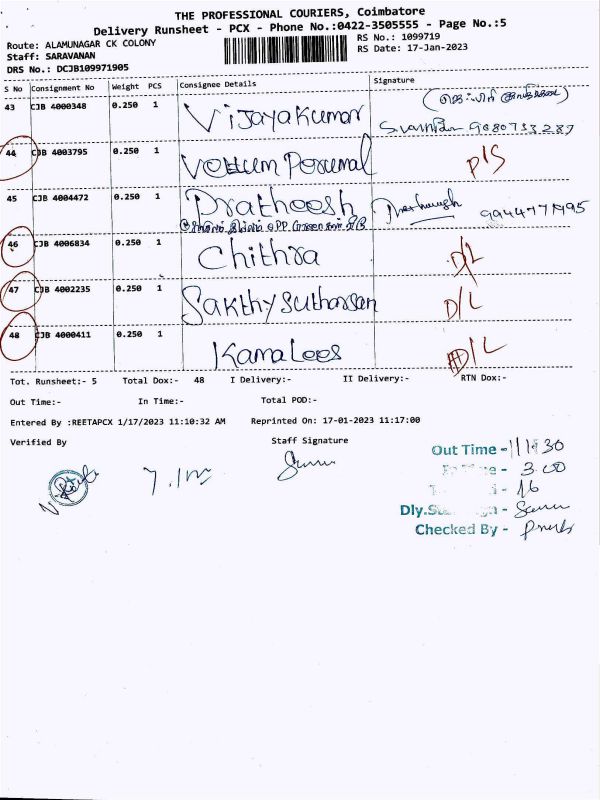 THE PROFESSIONAL COURIERS, Coimbatore
Delivery Runsheet - PCX - Phone No.:0422-3505555 - Page No.:5
Route: ALAMUNAGAR CK COLONY
RS No.: 1099719
Staff: SARAVANAN
RS Date: 17-Jan-2023
DRS No.: DCJB109971905
S No Consignment No Weight PCS Consignee Details Signature
43 CJB 4000348 0.250 1 Vijayakumar
9080733287
44 CJB 4003795 0.250 1 Perumal P/S
45 CJB 4004472 0.250 1 Pratheesh
9944771995
46 CJB 4006834 0.250 1 Chithra D/L
47 CJB 4002235 0.250 1 Sakthy Sutharsan D/L
48 CJB 4000411 0.250 1 Kamalees D/L
Tot. Runsheet:- 5 Total Dox:- 48 I Delivery:- II Delivery:- RTN Dox:-
Out Time:- In Time:- Total POD:-
Entered By :REETAPCX 1/17/2023 11:10:32 AM Reprinted On: 17-01-2023 11:17:00
Verified By Staff Signature
Out Time - 11:30
- 3.00
- 16
Dly.
Checked By -